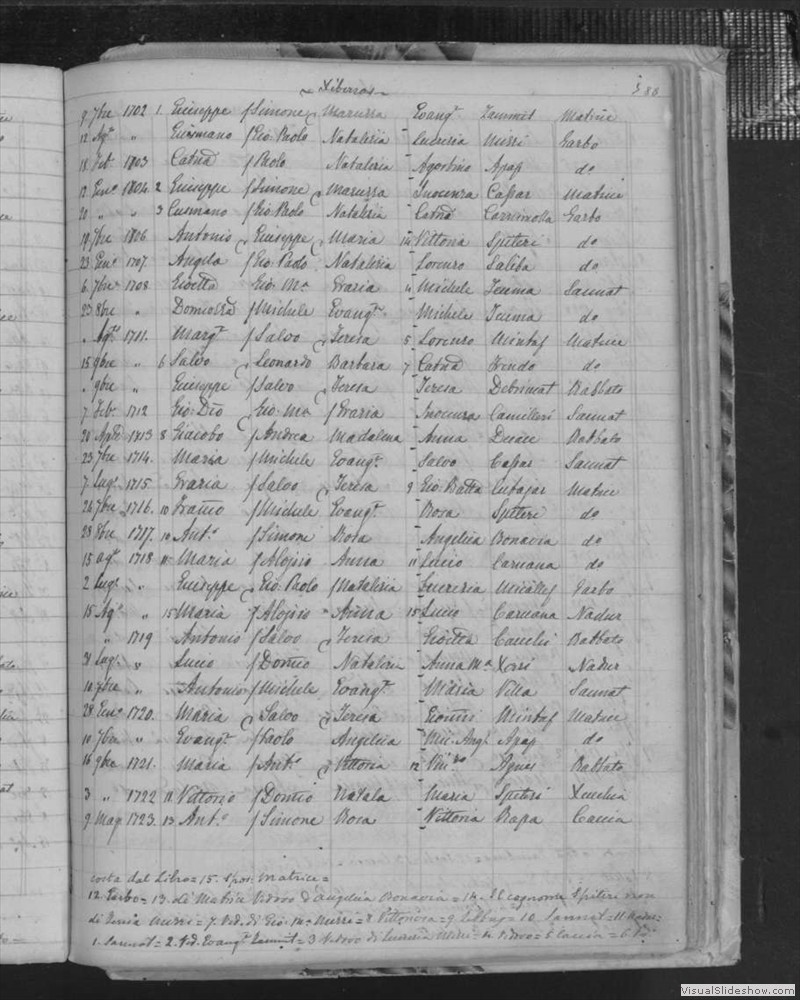 ~ Xiberras ~ 588
9 7bre 1702 1. Giuseppe f Simone Maruzza Evangta Zammit Matrice
12 Agto " Cusmano f Gio: Paolo Nataleria Lucrezia Mizzi Garbo
18 Feb. 1703 Catnd f Paolo Nataleria Agostino Apap do
12 Geno 1704 2 Giuseppe f Simone Maruzza Inocenza Cassar Matrice
20 " " 3 Cusmano f Gio Paolo Nataleria Catnd Garbo
19 7bre 1706 Antonio Giuseppe Maria 14 Vittoria Spiteri do
23 Geno 1707 Angela f Gio: Paolo Nataleria Lorenzo Saliba do
6 7bre 1708 Gio: Ma Grazia 4 Michele Zamma Sannat
23 8bre " f Michele Evangta Michele do
" Agto 1711. Margta f Salvo Teresa 5 Lorenzo Mintof Matrice
15 9bre " 6 Salvo Leonardo Barbara 7 Catnd do
" 9bre " Giuseppe f Salvo Teresa Teresa Debrincat Rabbato
7 Feb. 1712 Gio: Dio Gio: Ma f Grazia Inocenza Camilleri Sannat
20 Aple 1713 8 Giacobo f Andrea Madalena Anna Rabbato
23 7bre 1714. Maria f Michele Evangta Salvo Cassar Sannat
7 Lugo 1715 Grazia f Salvo Teresa 9 Gio Batta Cutajar Matrice
26 7bre 1716. 10 f Michele Evangta Rosa Spiteri do
28 8bre 1717. 10 Anto f Simone Rosa Angelica Bonavia do
15 Ago 1718 11 Maria f Alojsio Anna 11 Lucio Caruana do
2 Lugo " Giuseppe Gio: Paolo f Nataleria Lucrezia Micallef Garbo
15 Ago " 15 Maria f Alojsio Anna 15 Lucio Caruana Nadur
" 1719 Antonio f Salvo Teresa Rabbato
" Lucio f Domco Nataleria Anna Ma Xerri Nadur
10 7bre " Antonio f Michele Evangta Maria Villa Sannat
28 Geno 1720. Maria Salvo Teresa Mintof Matrice
10 7bre " Evangta f Paolo Angelica Mic: Angl Apap do
16 9bre 1721. Maria f Anto Vittoria 12 Agius Rabbato
3 " 1722 12 Vittorio f Domco Natala Maria Spiteri Xeuchia
9 Mago 1723. 13. Anto f Simone Rosa Vittoria Rapa Caccia
costa dal Libro = 15. Matrice =
12 Garbo = 13. di Matrice Vedovo d'Angelica Bonavia = 14. Il cognome Spiteri non
Mizzi = 7. Ved. di Gio: Ma Mizzi = 8 Vittoriosa = 9 = 10. Sannat = 11 Nadur =
1. Sannat = 2. Ved. Evangta Zammit = 3 Vedovo di Lucrezia Mizzi = 4. Vedovo = 5 Caccia = 6
VisualSlideshow.com